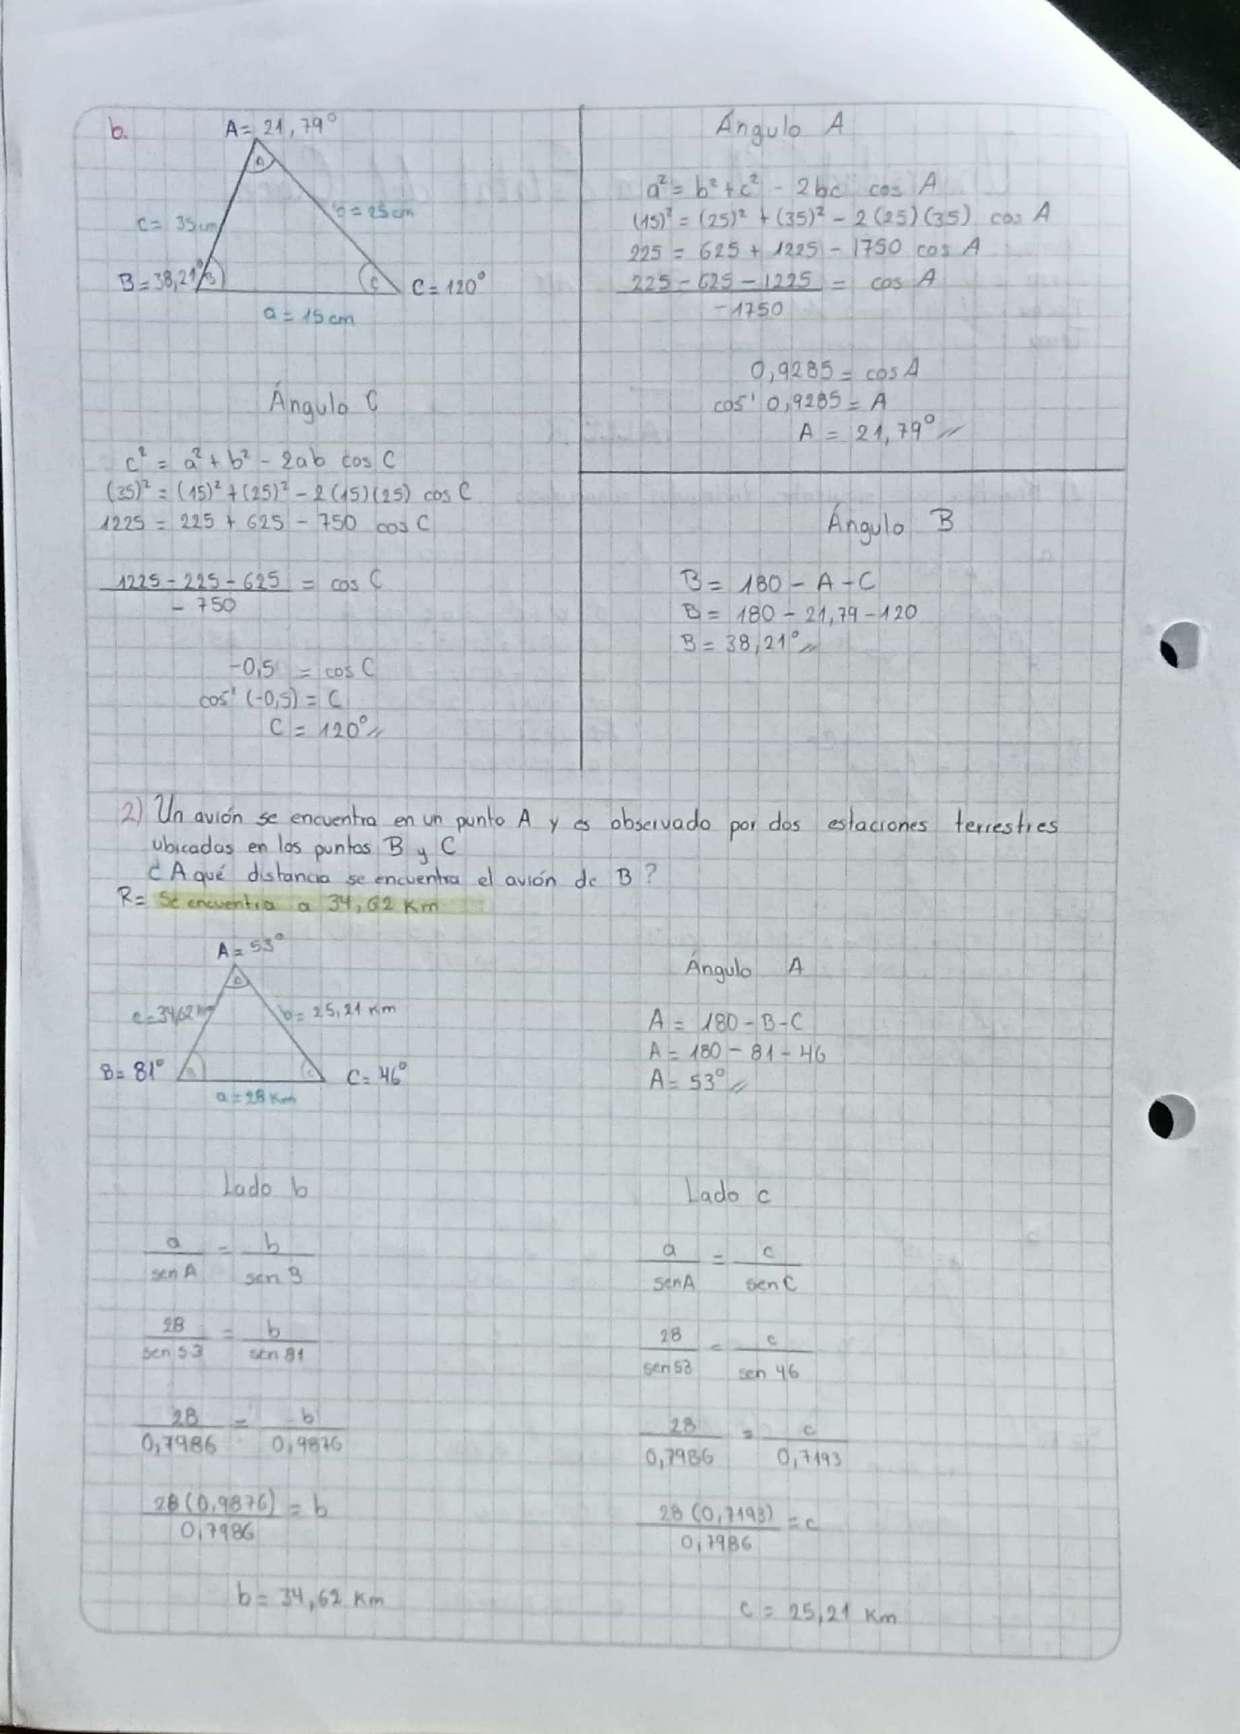 b.
A = 21,79°
c = 35cm
b = 25cm
B = 38,21°
B
C
C = 120°
a = 15cm
Ángulo C
c² = a² + b² - 2ab cos C
(35)² = (15)² + (25)² - 2(15)(25) cos C
1225 = 225 + 625 - 750 cos C
1225 - 225 - 625 = cos C
- 750
-0,5 = cos C
cos⁻¹ (-0,5) = C
C = 120°//
Ángulo A
a² = b² + c² - 2bc cos A
(15)² = (25)² + (35)² - 2(25)(35) cos A
225 = 625 + 1225 - 1750 cos A
225 - 625 - 1225 = cos A
-1750
0,9285 = cos A
cos⁻¹ 0,9285 = A
A = 21,79°//
Ángulo B
B = 180 - A - C
B = 180 - 21,79 - 120
B = 38,21°//
2) Un avión se encuentra en un punto A y es observado por dos estaciones terrestres
ubicadas en los puntos B y C
¿A qué distancia se encuentra el avión de B?
R= Se encuentra a 34,62 Km
A = 53°
c = 34,62 Km
b = 25,21 Km
B = 81°
C = 46°
a = 28 Km
Ángulo A
A = 180 - B - C
A = 180 - 81 - 46
A = 53°//
Lado b
a = b
sen A sen B
28 = b
sen 53 sen 81
28 = b
0,7986 0,9876
28 (0,9876) = b
0,7986
b = 34,62 Km
Lado c
a = c
sen A sen C
28 = c
sen 53 sen 46
28 = c
0,7986 0,7193
28 (0,7193) = c
0,7986
c = 25,21 Km